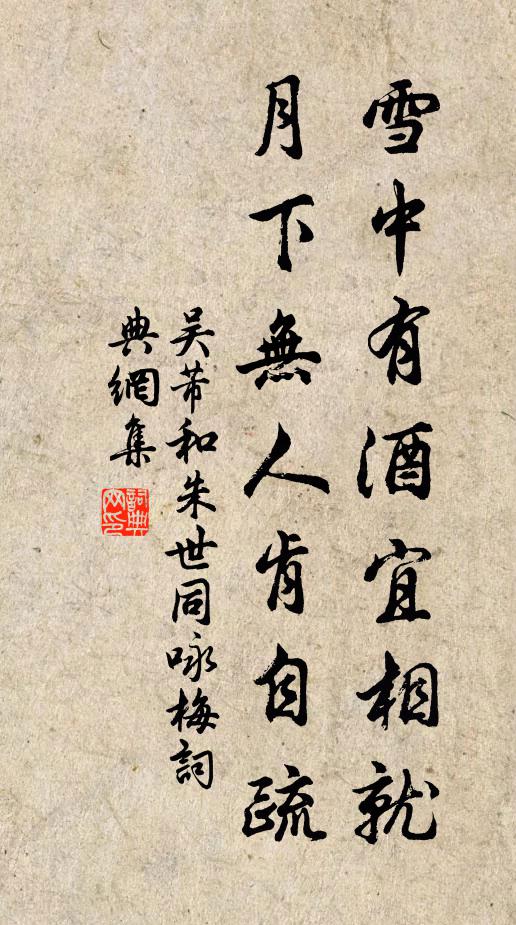 雪中有酒宜相就
月下無人肯自疏
吳芾和朱世同咏梅詞
典網集
詞典網印